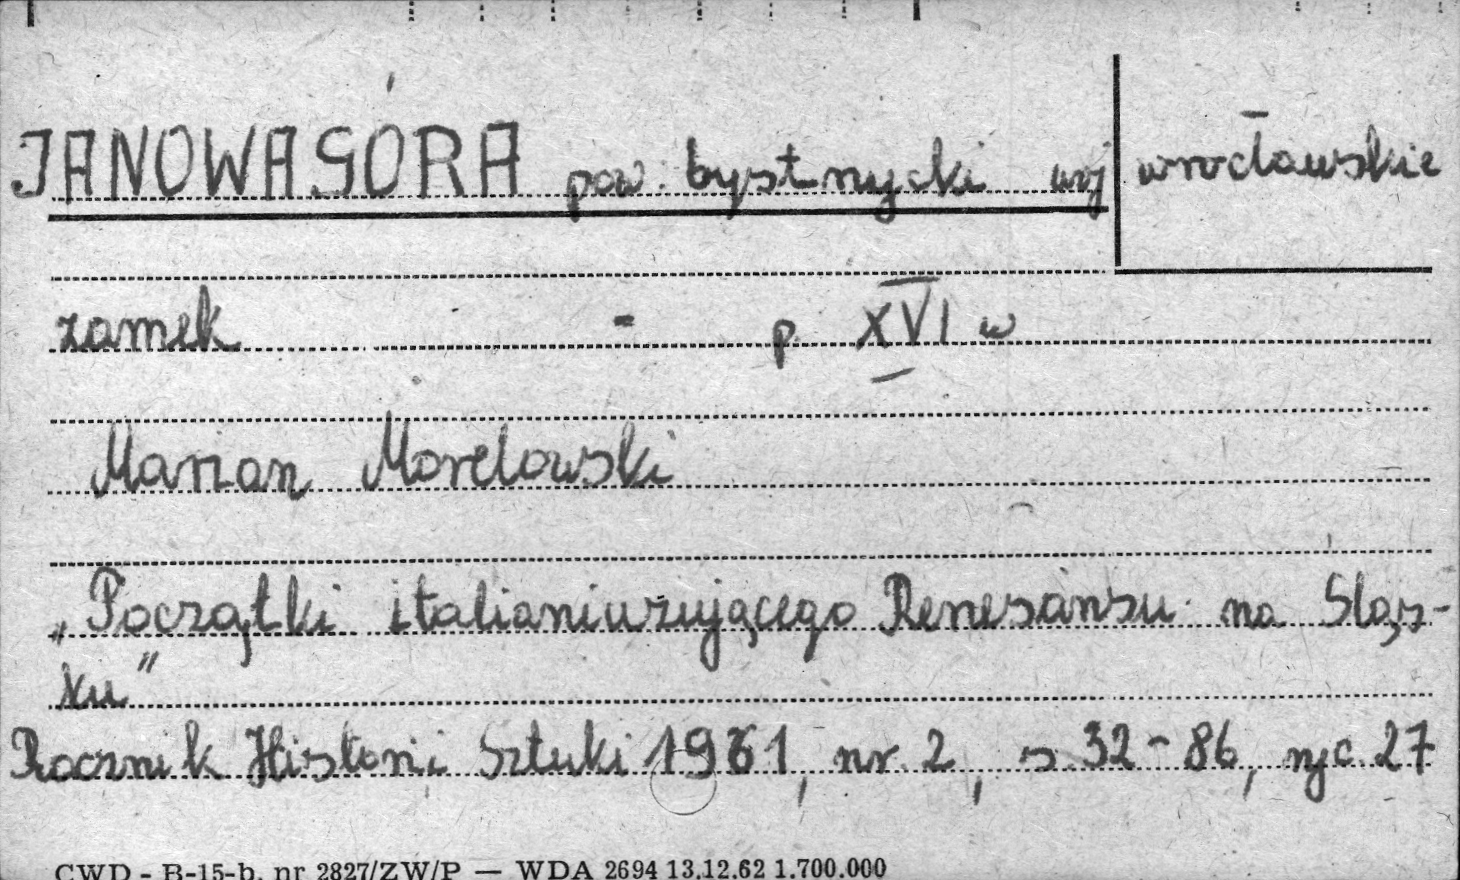 JANOWA GÓRA pow. bystrzycki woj wrocławskie
zamek - p. XVI w
Marian Morelowski
„Początki italianiuzującego Renesansu na Sląs-
ku"
Rocznik Historii Sztuki 1961, nr. 2, s. 32-86, ryc. 27
CWD - B-15-b. nr 2827/ZW/P — WDA 2694 13.12.62 1.700.000